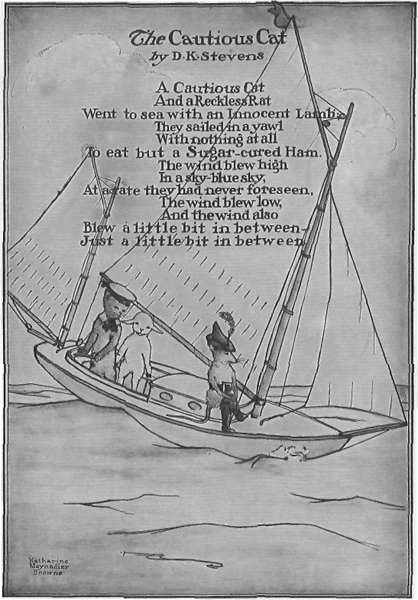 The Cautious Cat
by D.K. Stevens
A Cautious Cat
And a Reckless Rat
Went to sea with an Innocent Lamb;
They sailed in a yawl
With nothing at all
To eat but a Sugar-cured Ham.
The wind blew high
In a sky-blue sky,
At a rate they had never foreseen,
The wind blew low,
And the wind also
Blew a little bit in between—
Just a little bit in between.
Katharine
Maynadier
Browne